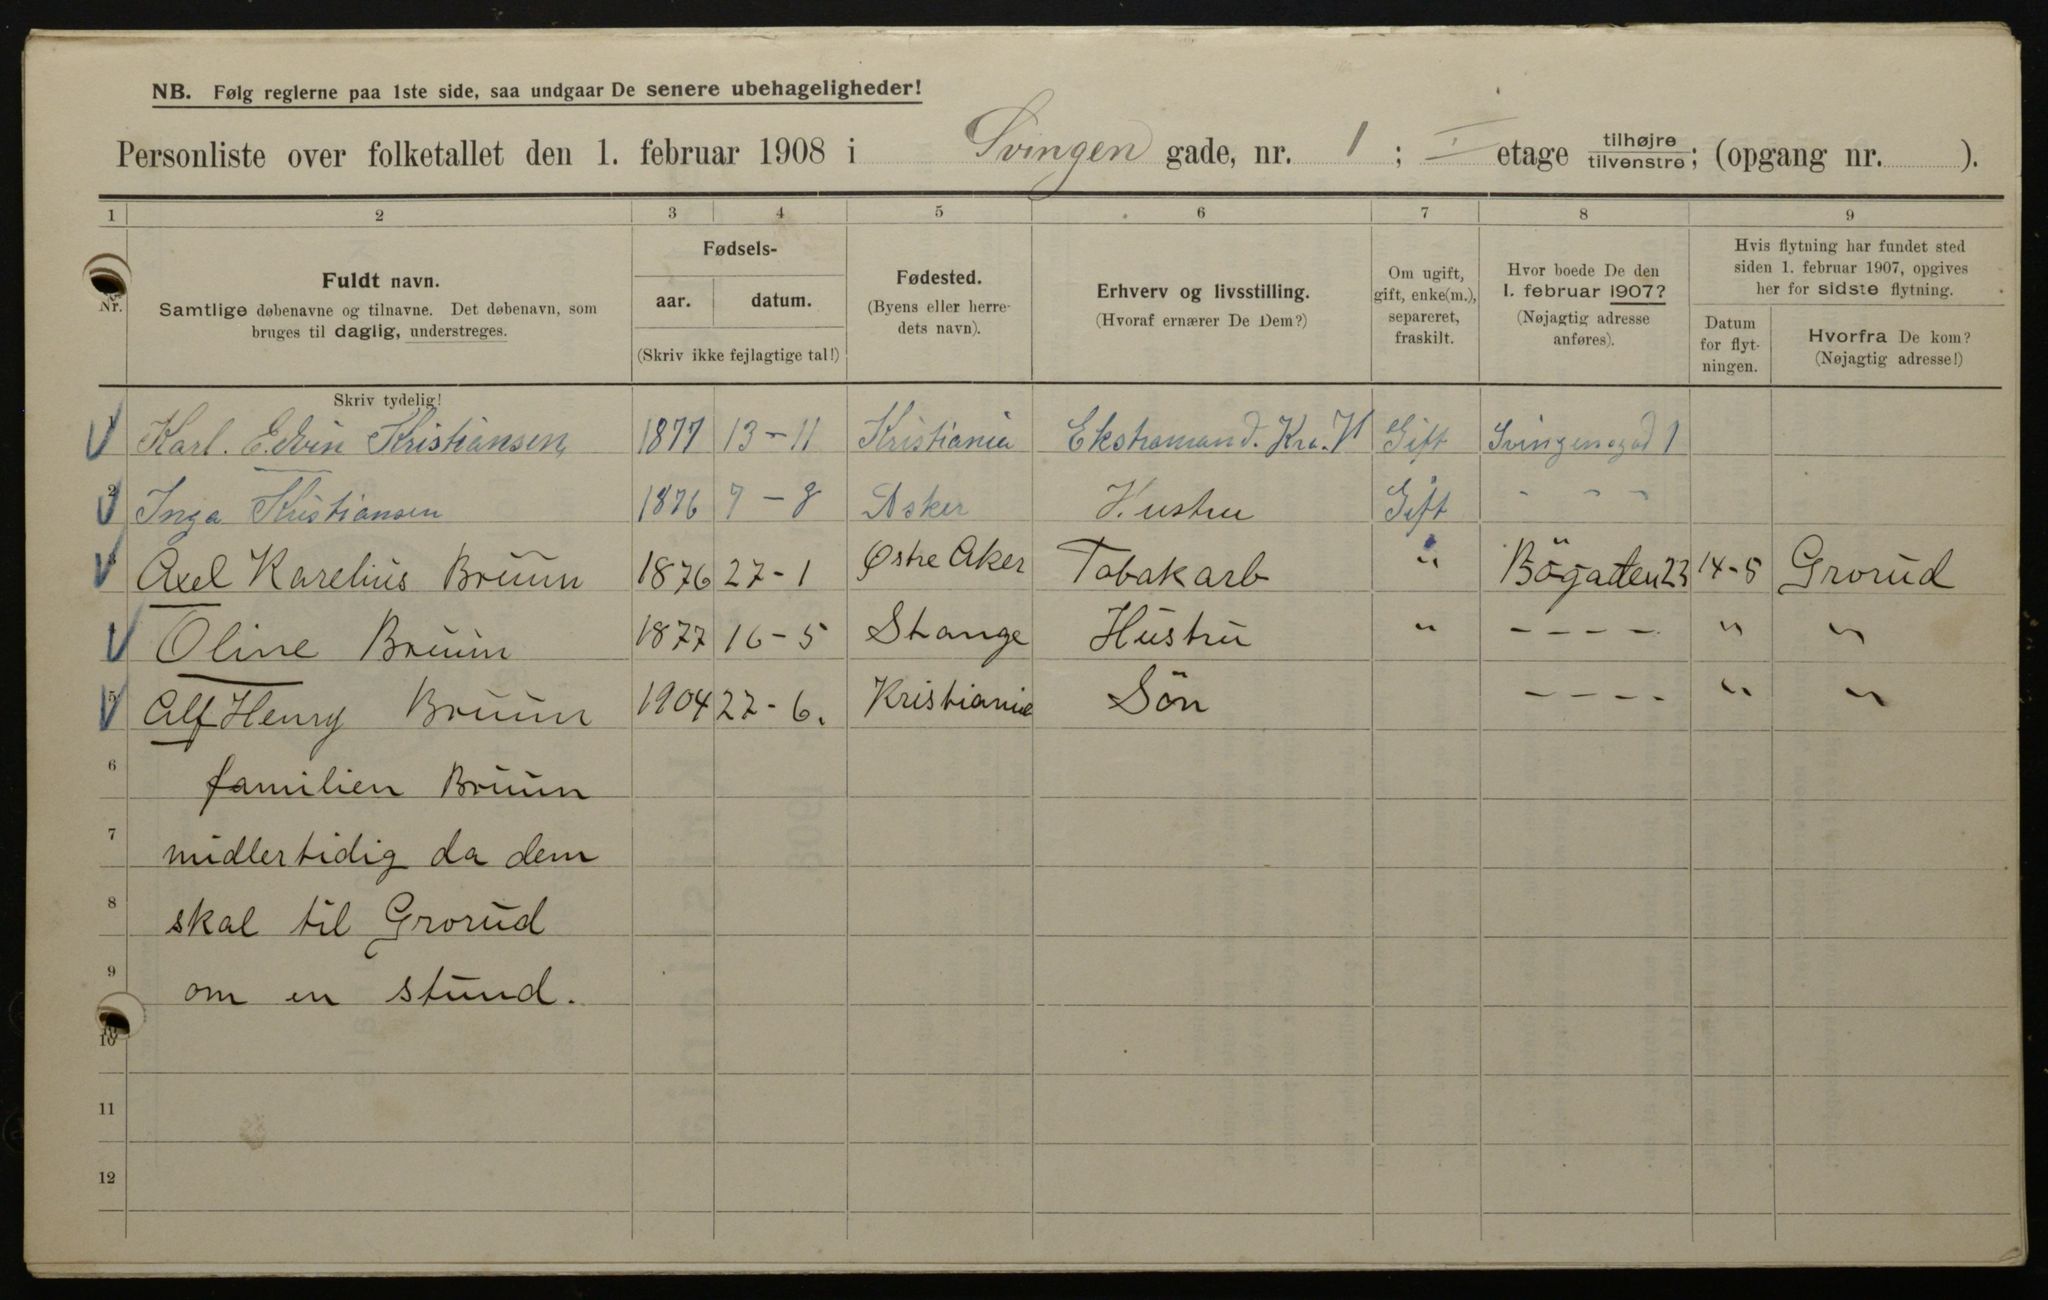 NB. Følg reglerne paa 1ste side, saa undgaar De senere ubehageligheder!
Personliste over folketallet den 1. februar 1908 i Svingen gade, nr. 1; I etage tilhøjre tilvenstre; (opgang nr. ).
1 2 3 4 5 6 7 8 9
Nr.
Fuldt navn.
Samtlige døbenavne og tilnavne. Det døbenavn, som
bruges til daglig, understreges.
Fødsels-
aar. datum.
(Skriv ikke fejlagtige tal!)
Fødested.
(Byens eller herre-
dets navn).
Erhverv og livsstilling.
(Hvoraf ernærer De Dem?)
Om ugift,
gift, enke(m.),
separeret,
fraskilt.
Hvor boede De den
1. februar 1907?
(Nøjagtig adresse
anføres).
Hvis flytning har fundet sted
siden 1. februar 1907, opgives
her for sidste flytning.
Datum
for flyt-
ningen.
Hvorfra De kom?
(Nøjagtig adresse!)
Skriv tydelig!
1 Karl. Edvin Kristiansen, 1877 13-11 Kristiania Ekstramand. Kra. V Gift Svingensgad 1
2 Inga Kristiansen 1876 7-8 Asker Hustru Gift - - -
Axel Karelius Bruun 1876 27-1 Østre Aker Tobakarb " Bögaden 23 14-5 Grorud
Oline Bruun 1877 16-5 Stange Hustru " - - - - " "
5 Alf Henry Bruun 1904 27-6. Kristiania Sön - - - - " "
6 familien Bruun
7 midlertidig da dem
8 skal til Grorud
9 om en stund.
10
11
12